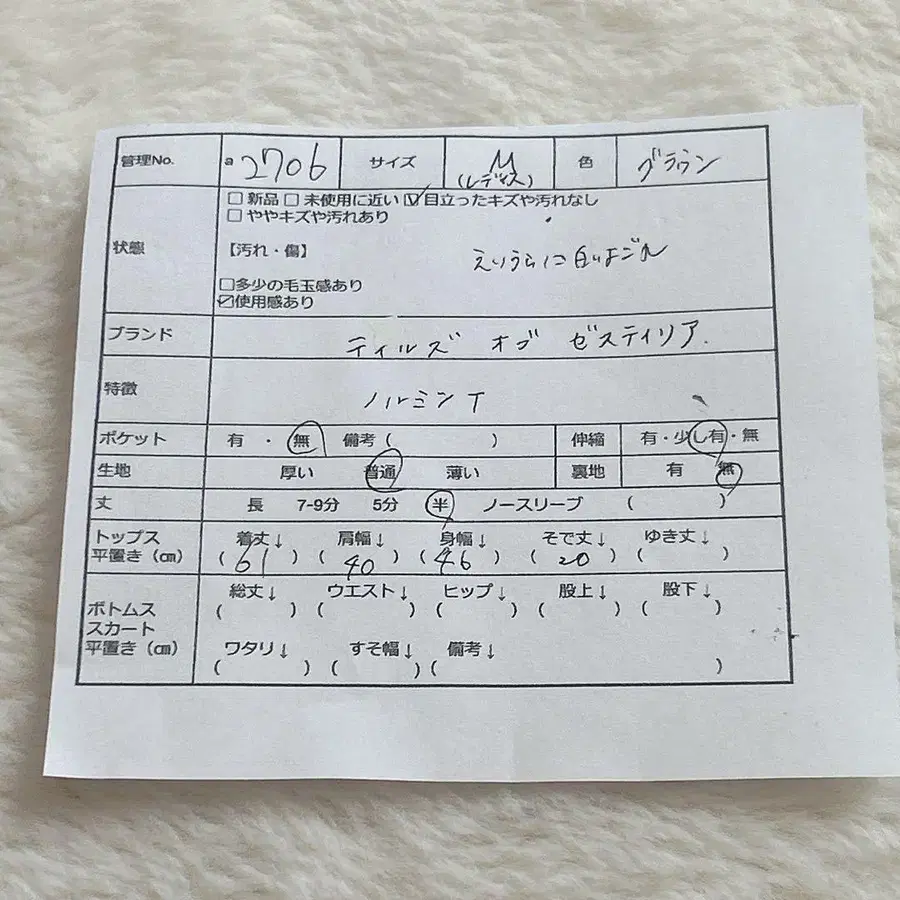 管理No. a2706 サイズ M (レディス) 色 グラウン
状態 □ 新品 □ 未使用に近い ☑ 目立ったキズや汚れなし
□ ややキズや汚れあり
【汚れ・傷】 えりうらに白いよごれ
□多少の毛玉感あり
☑使用感あり
ブランド ティルズ オブ ゼスティリア.
特徴 ノルミンT
ポケット 有 ・ 無 備考 ( ) 伸縮 有・少し有・無
生地 厚い 普通 薄い 裏地 有 無
丈 長 7-9分 5分 半 ノースリーブ ( )
トップス 着丈↓ 肩幅↓ 身幅↓ そで丈↓ ゆき丈↓
平置き (㎝) (61) (40) (46) (20) ( )
ボトムス 総丈↓ ウエスト↓ ヒップ↓ 股上↓ 股下↓
スカート ( ) ( ) ( ) ( ) ( )
平置き (㎝) ワタリ↓ すそ幅↓ 備考↓
( ) ( ) ( )